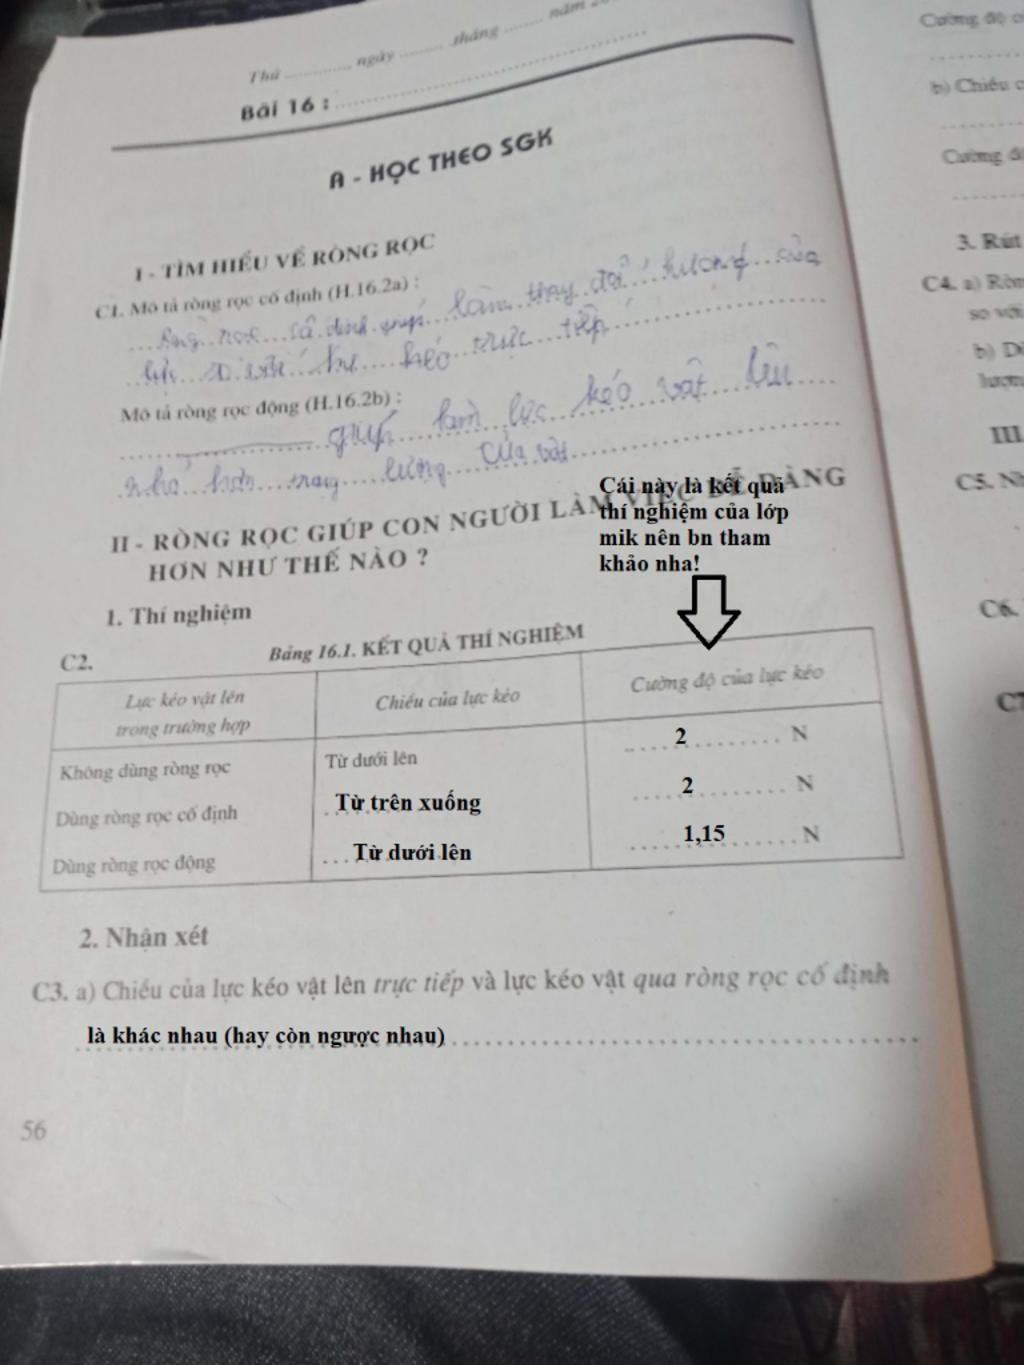 Thứ ............. ngày ......... tháng ........ năm
Bài 16 : ........................................
A - HỌC THEO SGK
I - TÌM HIỂU VỀ RÒNG RỌC
C1. Mô tả ròng rọc cố định (H.16.2a) :
ròng rọc cố định giúp làm thay đổi hướng của
lực so với khi kéo trực tiếp
Mô tả ròng rọc động (H.16.2b) :
giúp làm lực kéo vật lên
nhỏ hơn trọng lượng của vật
Cái này là kết quả
thí nghiệm của lớp
mik nên bn tham
khảo nha!
II - RÒNG RỌC GIÚP CON NGƯỜI LÀM VIỆC DỄ DÀNG
HƠN NHƯ THẾ NÀO ?
1. Thí nghiệm
C2.
Bảng 16.1. KẾT QUẢ THÍ NGHIỆM
Lực kéo vật lên
trong trường hợp
Chiều của lực kéo
Cường độ của lực kéo
Không dùng ròng rọc Từ dưới lên 2 N
Dùng ròng rọc cố định Từ trên xuống 2 N
Dùng ròng rọc động Từ dưới lên 1,15 N
2. Nhận xét
C3. a) Chiều của lực kéo vật lên trực tiếp và lực kéo vật qua ròng rọc cố định
là khác nhau (hay còn ngược nhau)
56
Cường độ
b) Chiều
Cường
3. Rút
C4. a)
so với
b)
III
C5.
C6.